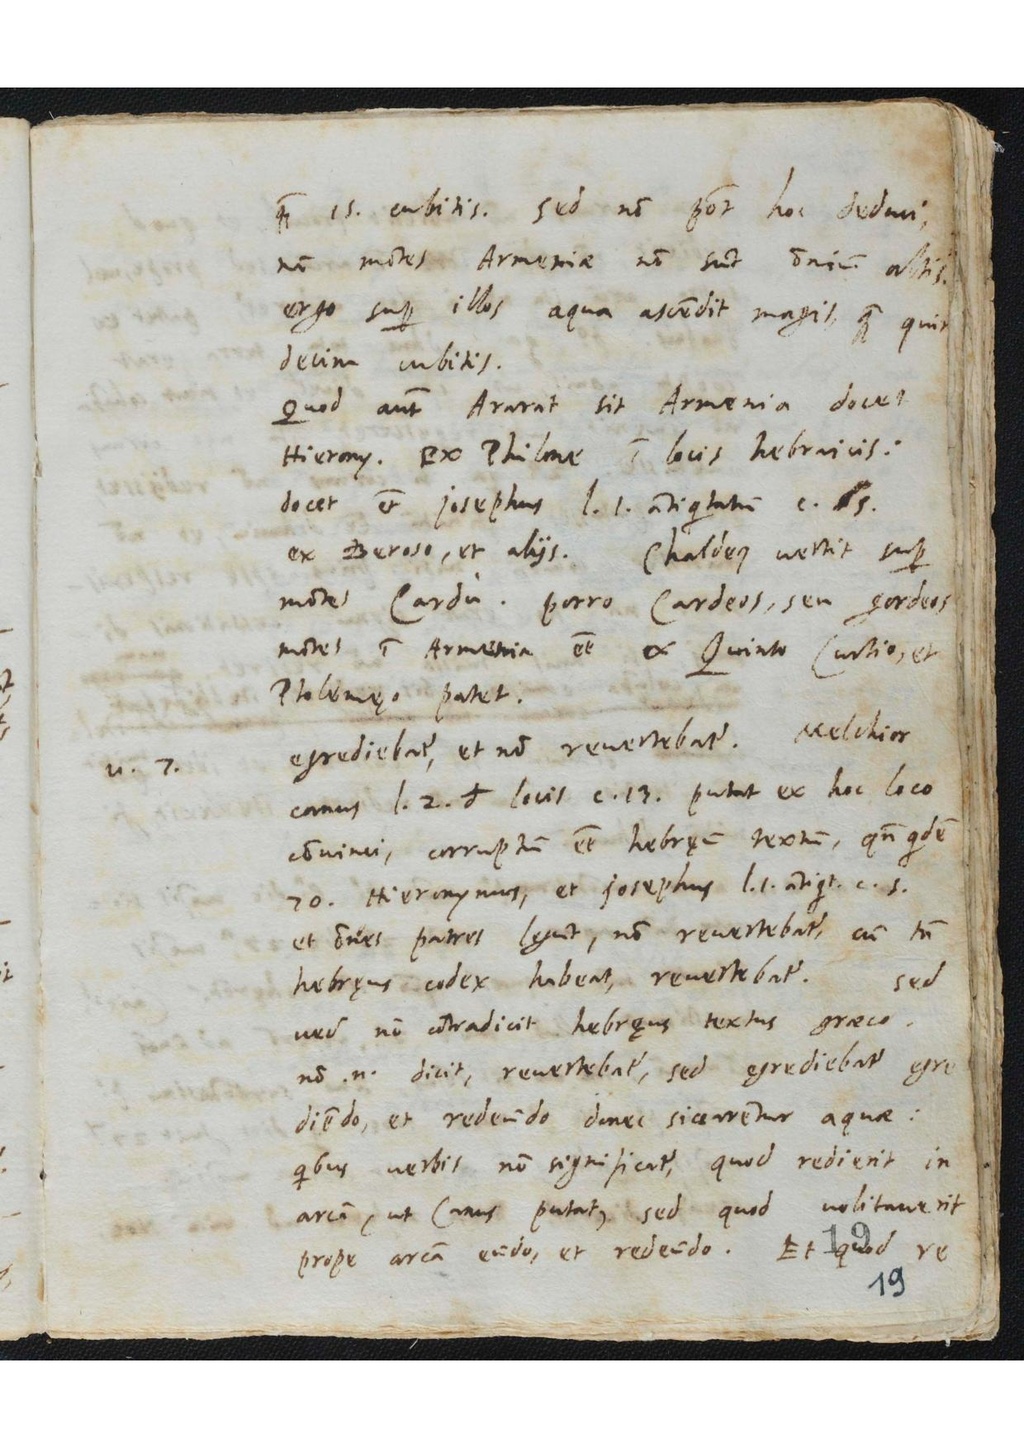 quā 15. cubitis. sed nō pōt hoc deduci,
nā mōtes Armeniæ nō sūt ōniū altis.
ergo sup illos aqua ascēdit magis, quā quin
decim cubitis.
Quod aūt Ararat sit Armenia docet
Hierony. Ex Philone ī locis hebraicis:
docet ēt josephus l. 1. ātiqitatū c. 5.
ex Beroso, et alijs. Chaldeq vertit sup
mōtes Cardu. porro Cardeos, seu gordeos
mōtes ī Armenia eē ex Quinto Curtio, et
Ptolemęo patet.
u. 7. egrediebat', et nō revertebat'. Melchior
canus l. 2. d locis c. 13. putat ex hoc loco
cōvinci, corruptū eē hebręū textū, qn̄ qdē
70. Hieronymus, et josephus l. 1. ātiqt. c. 5.
et ōnes patres legūt, nō revertebat', cū tn̄
hebręus codex habeat, revertebat'. sed
ued nō cōtradicit hebręus textus græco.
nō .n. dicit, revertebat', sed egrediebat' egre
diēdo, et redeūdo donec siccarentur aquæ:
qibus verbis nō significat', quod redierit in
arcā, ut Canus putat, sed quod volitaverit
prope arcā eūdo, et redeūdo. Et quod re
19
19